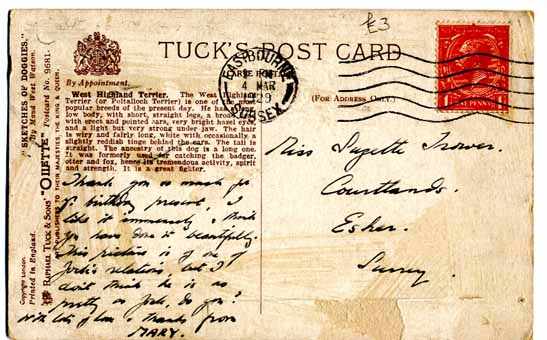 £3
TUCK'S POST CARD
CARTE POSTALE
(FOR ADDRESS ONLY.)
EASTBOURNE
4 MAR
29
SUSSEX
ONE PENNY
By Appointment.
West Highland Terrier. The West Highland
Terrier (or Poltalloch Terrier) is one of the most
popular breeds of the present day. He has a long
low body, with short, straight legs, a broad
with erect and pointed ears, very bright hazel eyes
and a light but very strong under jaw. The hair
is wiry and fairly long, white with occasionally a
slightly reddish tinge behind the ears. The tail is
straight. The ancestry of this dog is a long one.
It was formerly used for catching the badger,
otter and fox, hence its tremendous activity, spirit
and strength. It is a great fighter.
"SKETCHES OF DOGGIES."
By Maud West Watson.
RAPHAEL TUCK & SONS' "OILETTE" Postcard No. 9681.
PUBLISHERS TO THEIR MAJESTIES THE KING & QUEEN.
Copyright London.
Printed in England.
Thank you so much for
yr birthday present, I
like it immensely & think
you have done it beautifully.
This picture is of one of
Jock's relations, but I
don't think he is as
pretty as Jock, do you?
With lots of love & thanks from
MARY.
Miss Suzette Trower.
Courtlands.
Esher.
Surrey.